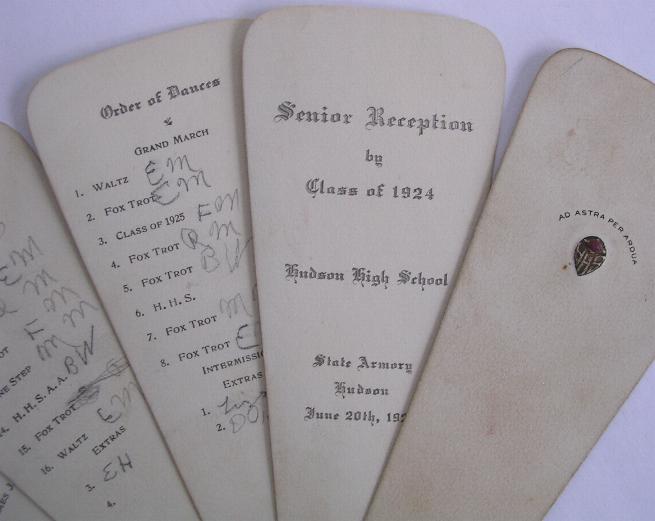 Order of Dances
GRAND MARCH
1. WALTZ EM
2. FOX TROT EM
3. CLASS OF 1925 FM
4. FOX TROT RM
5. FOX TROT BW
6. H. H. S.
7. FOX TROT M
8. FOX TROT E
INTERMISSIO
EXTRAS
1.
2.
Senior Reception
by
Class of 1924
Hudson High School
State Armory
Hudson
June 20th, 192
AD ASTRA PER ARDUA
HHS
EM
M
FM
M
NE STEP M
14. H. H. S. A. A. BW
15. FOX TROT
16. WALTZ EM
EXTRAS
3. EH
4.